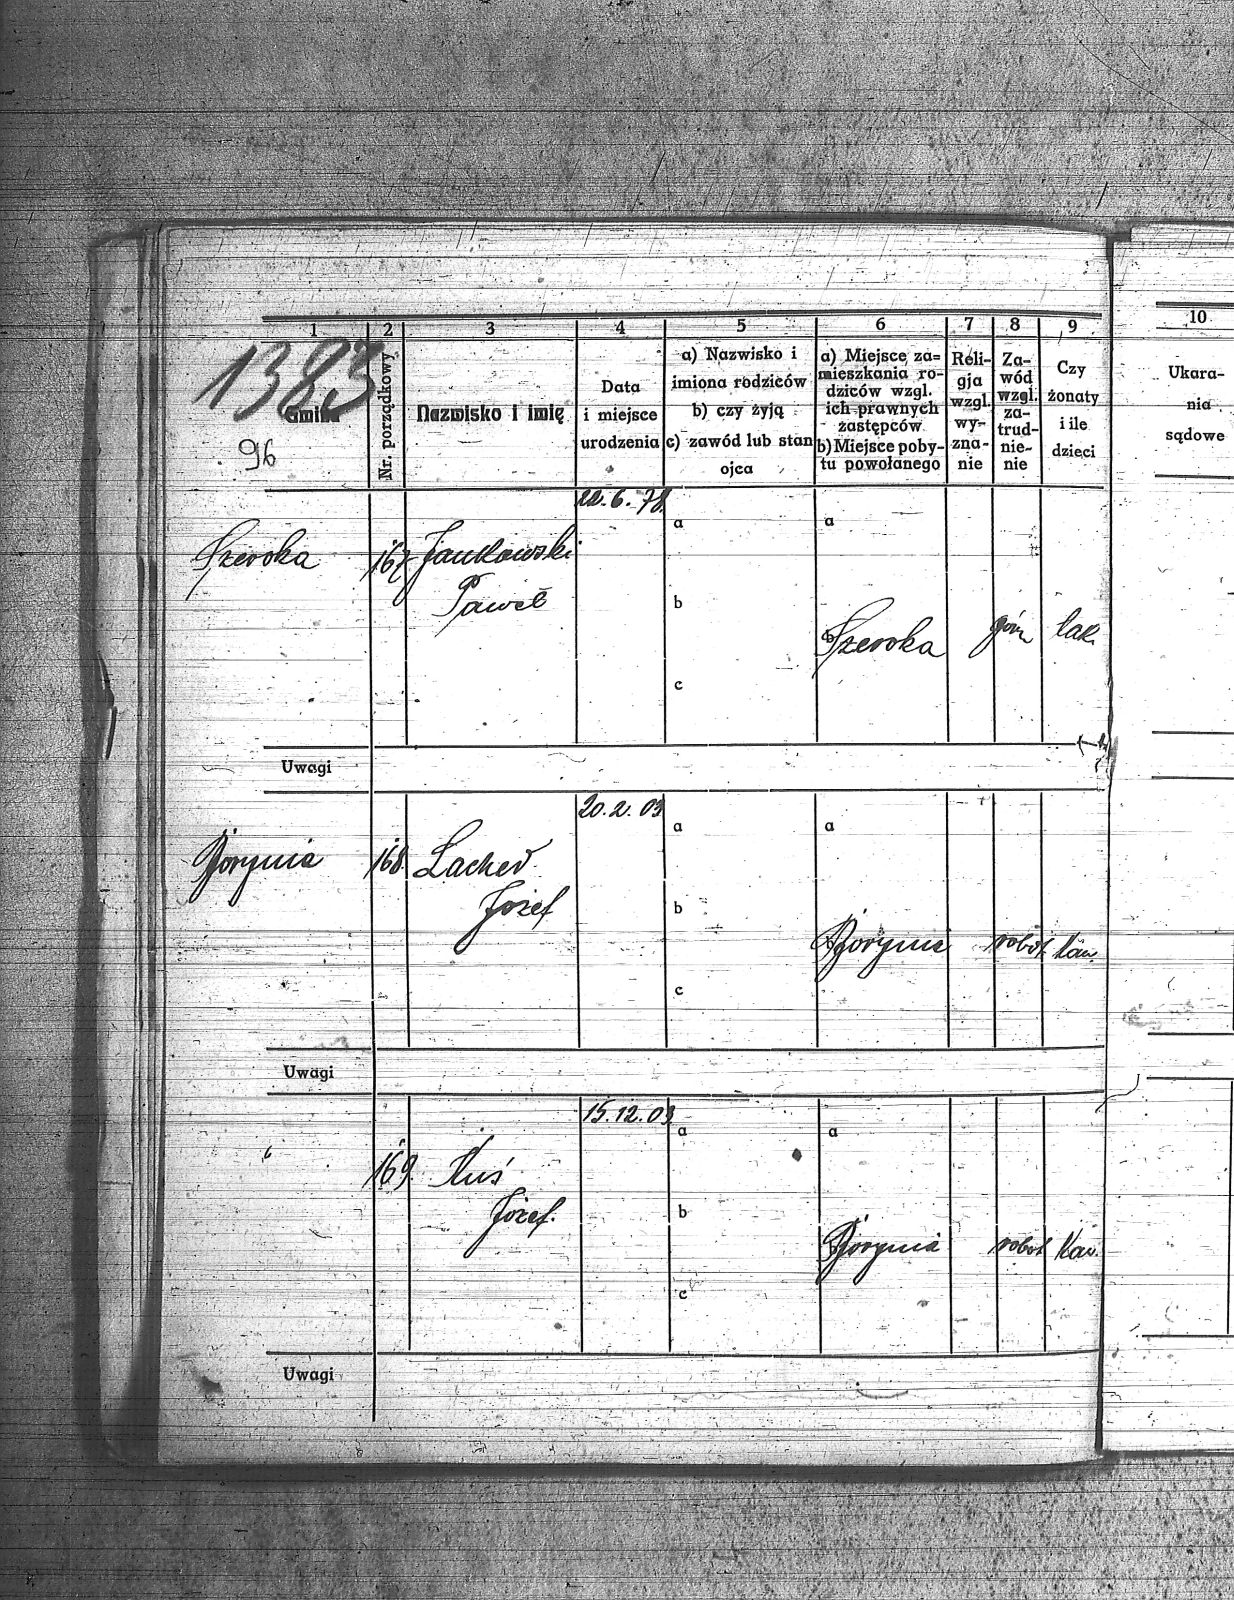 1 2 3 4 5 6 7 8 9 10
1383
Gmina
96
Nr. porządkowy
Nazwisko i imię
Data
i miejsce
urodzenia
a) Nazwisko i
imiona rodziców
b) czy żyją
c) zawód lub stan
ojca
a) Miejsce za=
mieszkania ro-
dziców wzgl.
ich prawnych
zastępców
b) Miejsce poby-
tu powołanego
Reli-
gja
wzgl.
wy-
zna-
nie
Za-
wód
wzgl.
za-
trud-
nie-
nie
Czy
żonaty
i ile
dzieci
Ukara-
nia
sądowe
22.6.78.
a a
Szeroka 167 Jankowski
Paweł
b
b Szeroka górn tak
c
Uwagi
20.2.03
a a
Borynia 168. Lacher
Józef
b
Borynia robot. kaw.
c
Uwagi
15.12.03
a a
" 169. Kuś
Józef.
b
Borynia robot kaw.
c
Uwagi